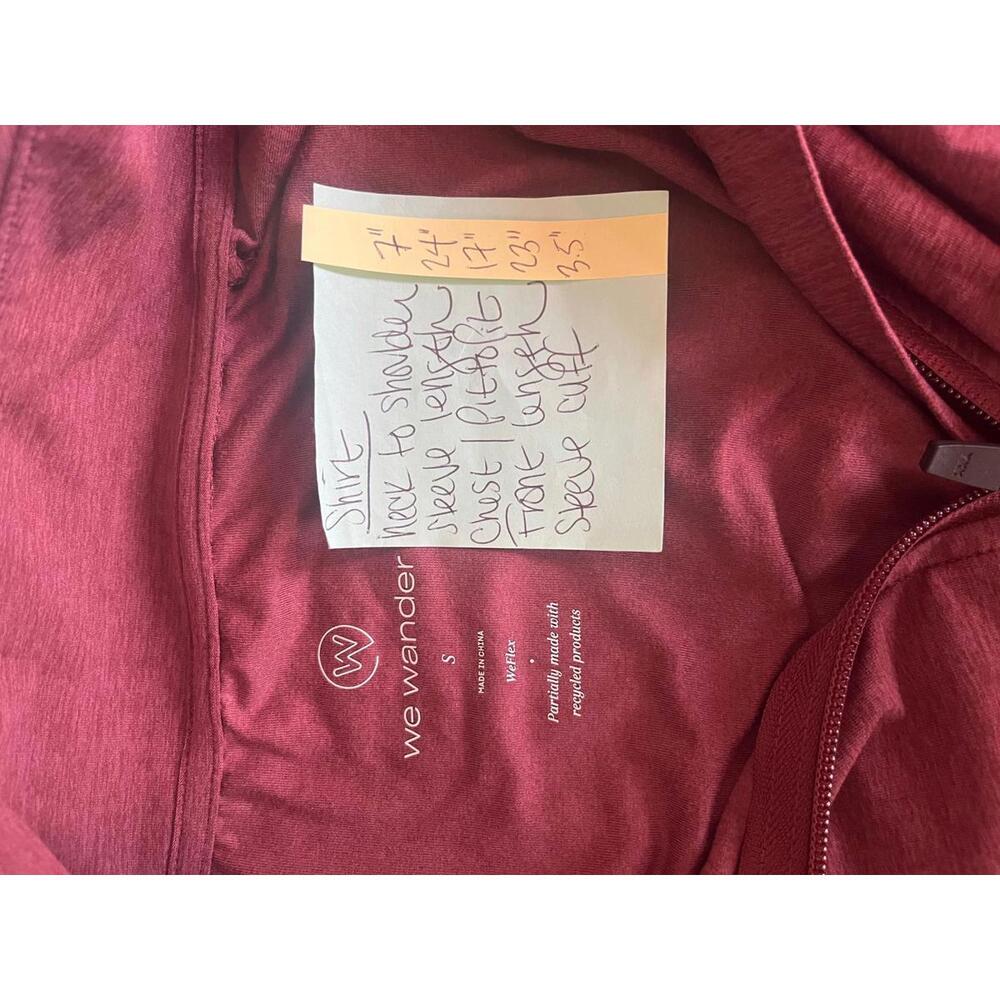 Shirt
Neck to shoulder 7"
Sleeve length 24"
Chest / Pit to Pit 17"
Front length 23"
Sleeve cuff 3.5"
W
we wander
S
MADE IN CHINA
WeFlex
Partially made with
recycled products